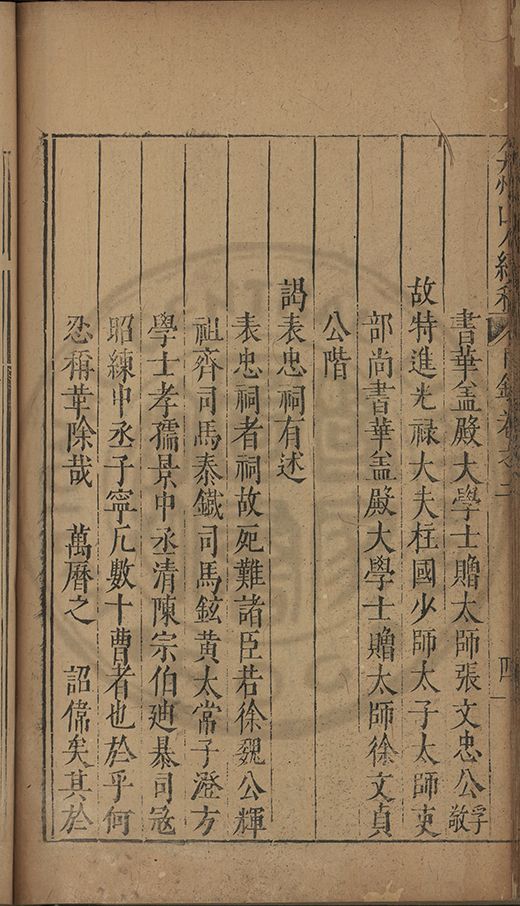 書華盖殿大學士贈太師張文忠公孚敬
故特進光禄大夫柱國少師太子太師吏
部尚書華盖殿大學士贈太師徐文貞
公階
謁表忠祠有述
表忠祠者祠故死難諸臣若徐魏公輝
祖齊司馬泰鐵司馬鉉黄太常子澄方
學士孝孺景中丞清陳宗伯廸暴司冦
昭練中丞子寧凢數十曹者也於乎何
忍稱革除哉 萬曆之 詔偉矣其於